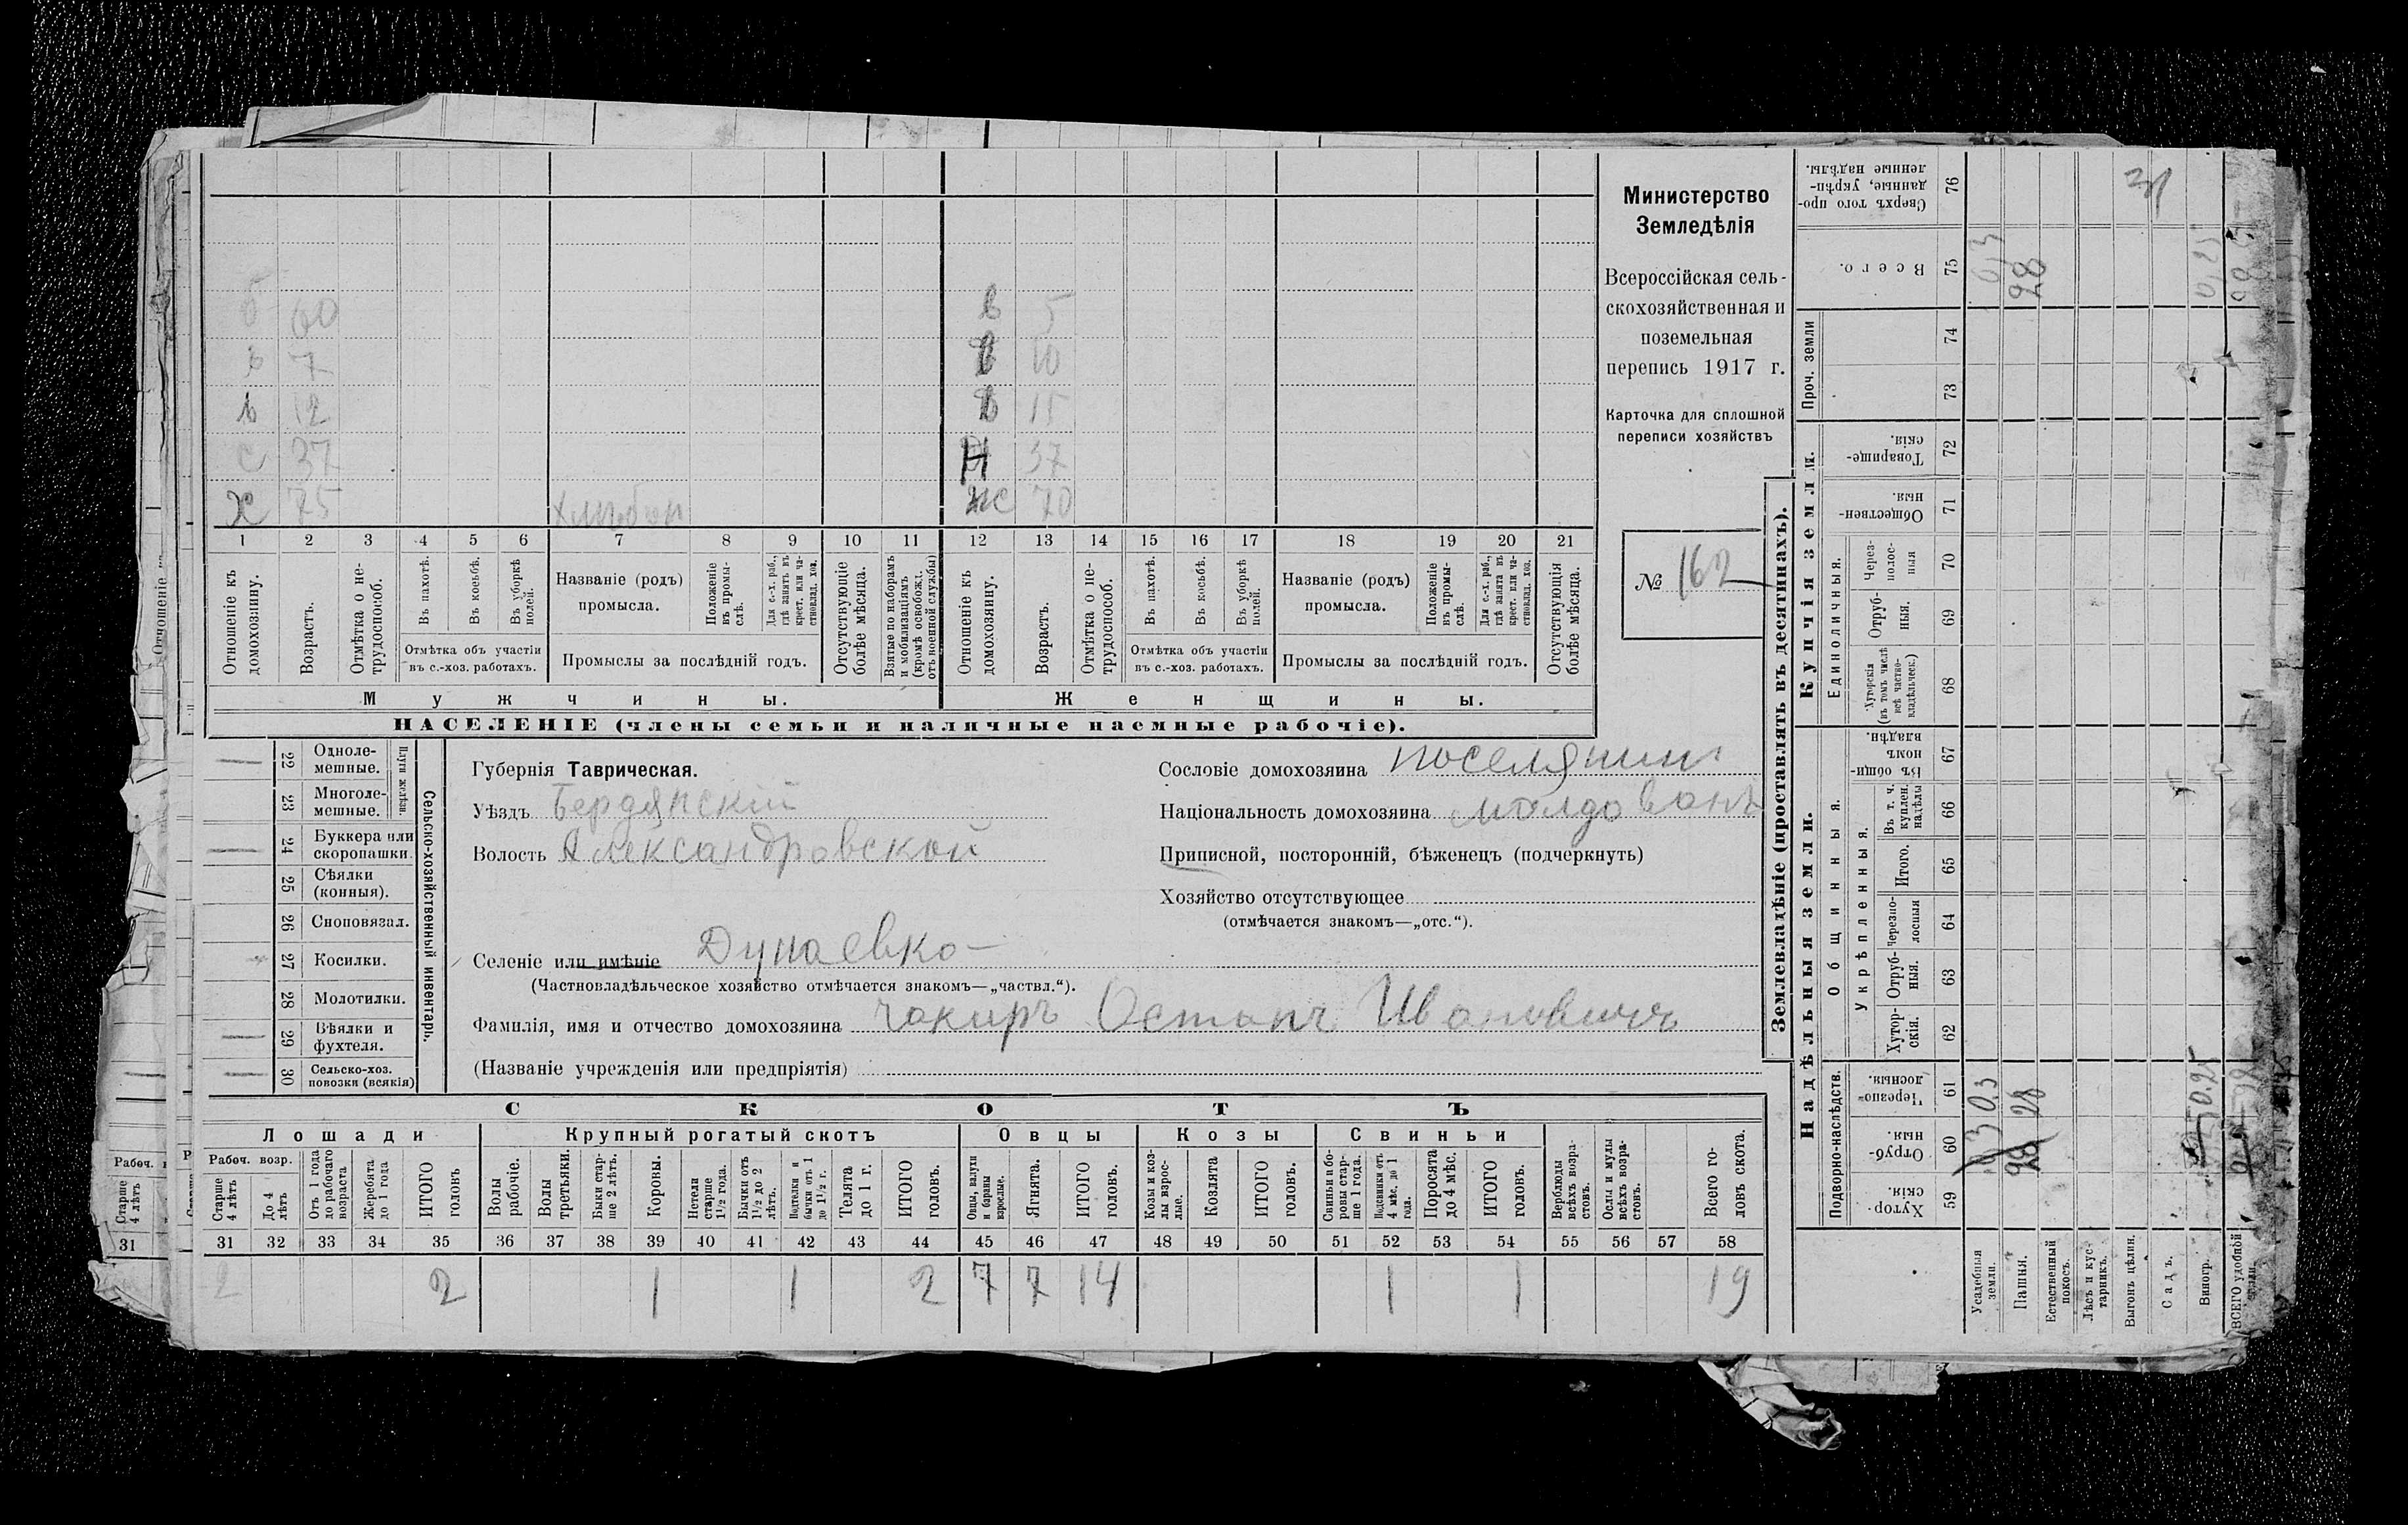 б 60
в 7
в 12
с 37
х 75 хлебор
в 5
в 10
в 15
н 37
ж 70
1 2 3 4 5 6 7 8 9 10 11 12 13 14 15 16 17 18 19 20 21
Отношеніе къ домохозяину.
Возрастъ.
Отмѣтка о нетрудоспособ.
Въ пахотѣ.
Въ косьбѣ.
Въ уборкѣ полей.
Отмѣтка объ участіи въ с.-хоз. работахъ.
Названіе (родъ) промысла.
Положеніе въ промыслѣ.
Для с.-х. раб., гдѣ занятъ въ крест. или частновлад. хоз.
Промыслы за послѣдній годъ.
Отсутствующіе болѣе мѣсяца.
Взятые по наборамъ и мобилизаціямъ (кромѣ освобожд. отъ военной службы)
Отношеніе къ домохозяину.
Возрастъ.
Отмѣтка о нетрудоспособ.
Въ пахотѣ.
Въ косьбѣ.
Въ уборкѣ полей.
Отмѣтка объ участіи въ с.-хоз. работахъ.
Названіе (родъ) промысла.
Положеніе въ промыслѣ.
Для с.-х. раб., гдѣ занята въ крест. или частновлад. хоз.
Промыслы за послѣдній годъ.
Отсутствующія болѣе мѣсяца.
Мужчины. Женщины.
НАСЕЛЕНІЕ (члены семьи и наличные наемные рабочіе).
Министерство
Земледѣлія
Всероссійская сель-
скохозяйственная и
поземельная
перепись 1917 г.
Карточка для сплошной
переписи хозяйствъ
№ 162
22 Одноле-
мешные.
23 Многоле-
мешные.
Плуги желѣзн.
24 Буккера или
скоропашки.
25 Сѣялки
(конныя).
26 Сноповязал.
27 Косилки.
28 Молотилки.
29 Вѣялки и
фухтеля.
30 Сельско-хоз.
повозки (всякія)
Сельско-хозяйственный инвентарь.
Губернія Таврическая.
Уѣздъ Бердянскій
Волость Александровской
Селеніе или имѣніе Дунаевка
(Частновладѣльческое хозяйство отмѣчается знакомъ—„частвл.“).
Фамилія, имя и отчество домохозяина Чакиръ Остапъ Ивановичъ
(Названіе учрежденія или предпріятія)
Сословіе домохозяина поселянин
Національность домохозяина молдованъ
Приписной, посторонній, бѣженецъ (подчеркнуть)
Хозяйство отсутствующее
(отмѣчается знакомъ—„отс.“).
СКОТЪ
Лошади Крупный рогатый скотъ Овцы Козы Свиньи
Рабоч. возр.
Старше 4 лѣтъ
До 4 лѣтъ
Отъ 1 года до рабочаго возраста
Жеребята до 1 года
ИТОГО головъ
Волы рабочіе.
Волы третьяки.
Быки старше 2 лѣтъ.
Коровы.
Нетели старше 1½ года.
Бычки отъ 1½ до 2 лѣтъ.
Подтелки и бычки отъ 1 до 1½ г.
Телята до 1 г.
ИТОГО головъ.
Овцы, валухи и бараны взрослые.
Ягнята.
ИТОГО головъ.
Козы и козлы взрослые.
Козлята
ИТОГО головъ.
Свиньи и боровы старше 1 года.
Подсвинки отъ 4 мѣс. до 1 года.
Поросята до 4 мѣс.
ИТОГО головъ.
Верблюды всѣхъ возрастовъ.
Ослы и мулы всѣхъ возрастовъ.
Всего головъ скота.
31 32 33 34 35 36 37 38 39 40 41 42 43 44 45 46 47 48 49 50 51 52 53 54 55 56 57 58
2 2 1 1 2 7 7 14 1 1 19
Землевладѣніе (проставлять въ десятинахъ).
Надѣльныя земли. Купчія земли.
Подворно-наслѣдств.
Общинныя.
Укрѣпленныя.
Единоличныя.
Проч. земли
59 Хуторскія.
60 Отрубныя.
61 Черезполосныя.
62 Хуторскія.
63 Отрубныя.
64 Черезполосныя
65 Итого.
66 Въ т. ч. куплен. надѣлы
67 Въ общинномъ владѣн.
68 Хуторскія (въ томъ числѣ всѣ частновладѣльческ.)
69 Отрубныя.
70 Черезполосныя
71 Общественныя.
72 Товарищескія.
73
74
75 Всего.
76 Сверхъ того проданные, укрѣпленные надѣлы.
Усадебныя земли. 0,3 0,3
Пашня. 28 28 28
Естественный покосъ.
Лѣсъ и кустарникъ.
Выгонъ цѣлин.
Садъ.
Виногр. 0,25 0,25
ВСЕГО удобной земли.
31